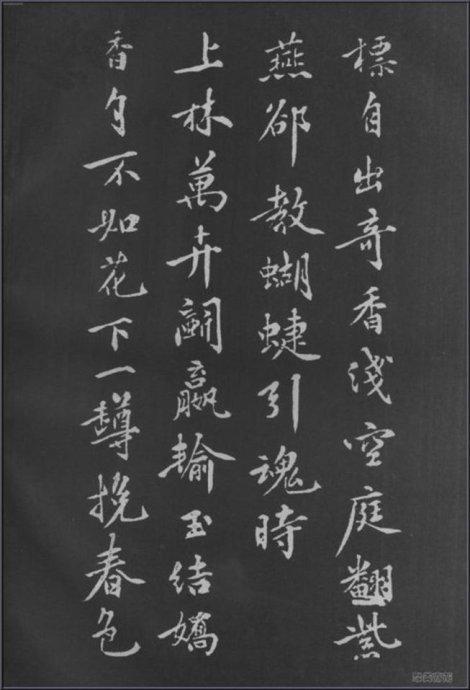 標自出奇香淺空庭翻紫
燕卻教蝴蝶引魂時
上林萬卉鬭嬴輸玉結嬌
香自不如花下一罇挽春色